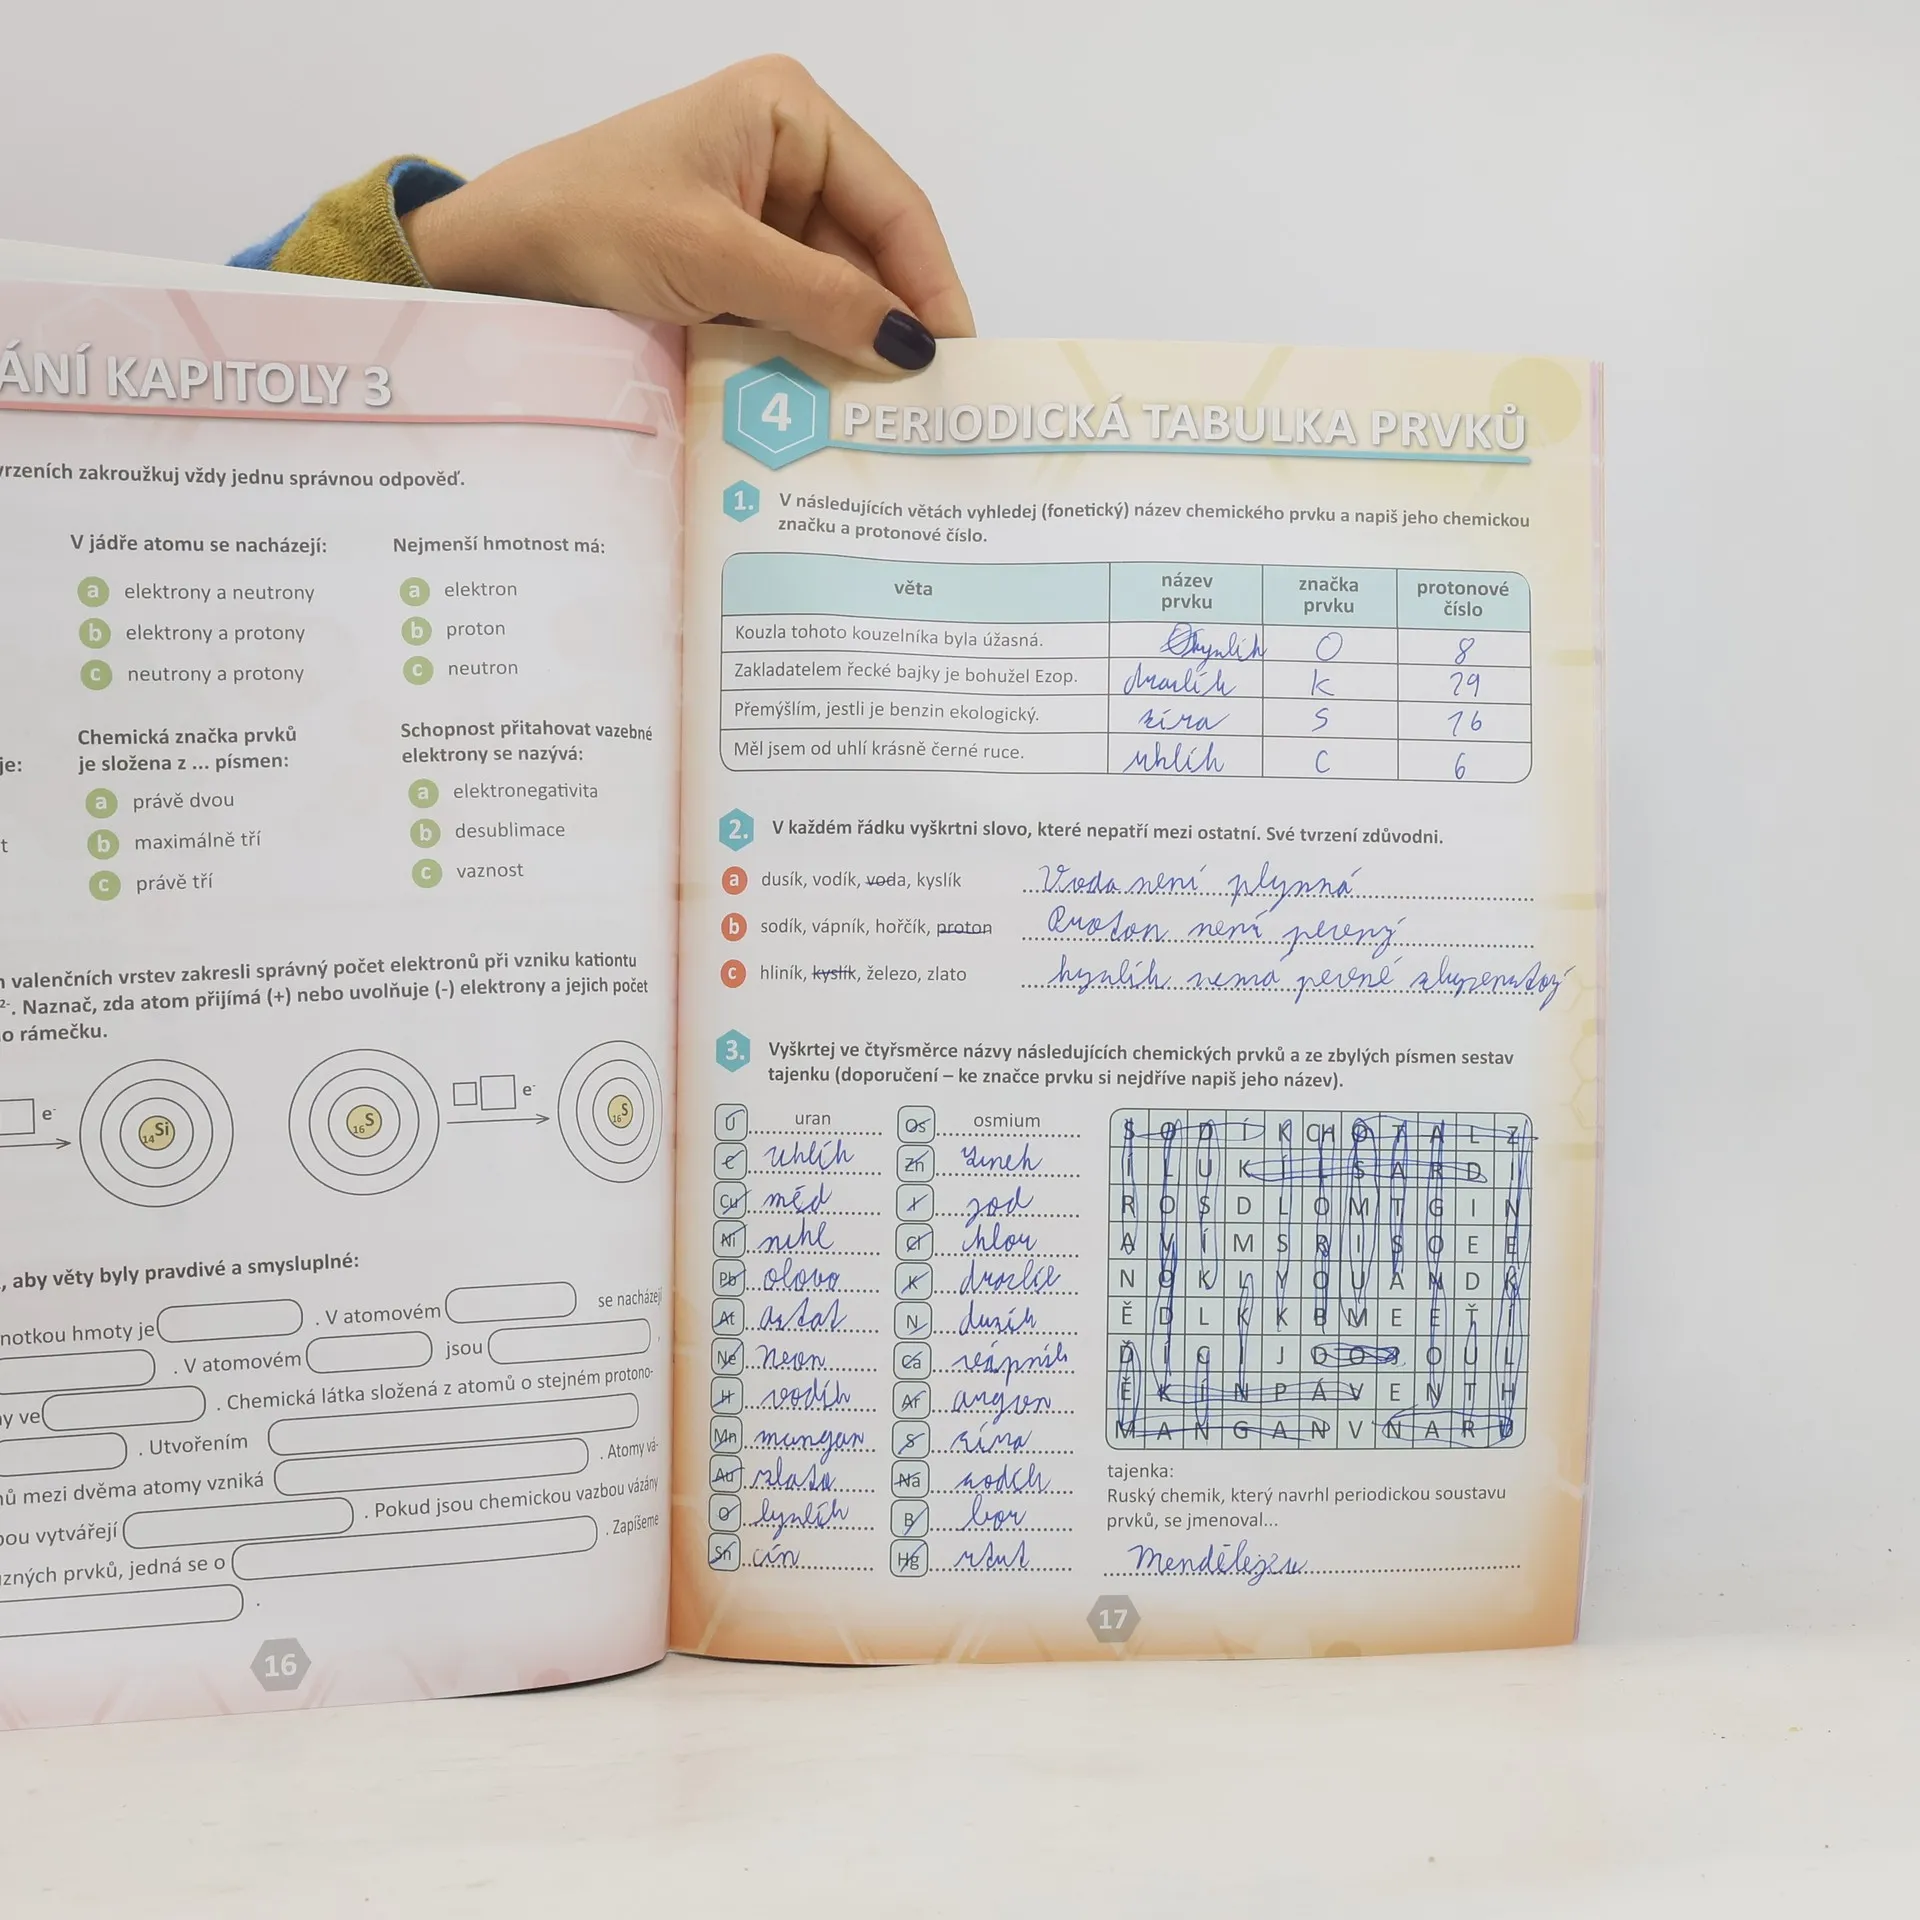 ÁNÍ KAPITOLY 3
vrzeních zakroužkuj vždy jednu správnou odpověď.
V jádře atomu se nacházejí:
a elektrony a neutrony
b elektrony a protony
c neutrony a protony
Nejmenší hmotnost má:
a elektron
b proton
c neutron
je:
t
Chemická značka prvků
je složena z ... písmen:
a právě dvou
b maximálně tří
c právě tří
Schopnost přitahovat vazebné
elektrony se nazývá:
a elektronegativita
b desublimace
c vaznost
h valenčních vrstev zakresli správný počet elektronů při vzniku kationtu
2-. Naznač, zda atom přijímá (+) nebo uvolňuje (-) elektrony a jejich počet
o rámečku.
e-
14Si
16S
e-
16S
, aby věty byly pravdivé a smysluplné:
notkou hmoty je . V atomovém se nacházejí
. V atomovém jsou ,
ny ve . Chemická látka složená z atomů o stejném protono-
. Utvořením . Atomy vá-
nů mezi dvěma atomy vzniká
pou vytvářejí . Pokud jsou chemickou vazbou vázány
ůzných prvků, jedná se o . Zapíšeme
.
16
4 PERIODICKÁ TABULKA PRVKŮ
1. V následujících větách vyhledej (fonetický) název chemického prvku a napiš jeho chemickou
značku a protonové číslo.
věta název prvku značka prvku protonové číslo
Kouzla tohoto kouzelníka byla úžasná. kyslík O 8
Zakladatelem řecké bajky je bohužel Ezop. draslík K 19
Přemýšlím, jestli je benzin ekologický. síra S 16
Měl jsem od uhlí krásně černé ruce. uhlík C 6
2. V každém řádku vyškrtni slovo, které nepatří mezi ostatní. Své tvrzení zdůvodni.
a dusík, vodík, voda, kyslík Voda není plynná
b sodík, vápník, hořčík, proton Proton není pevný
c hliník, kyslík, železo, zlato kyslík nemá pevné
3. Vyškrtej ve čtyřsměrce názvy následujících chemických prvků a ze zbylých písmen sestav
tajenku (doporučení – ke značce prvku si nejdříve napiš jeho název).
U uran
C uhlík
Cu měd
Ni nikl
Pb olovo
At astat
Ne Neon
H vodík
Mn mangan
Au zlato
O kyslík
Sn cín
Os osmium
Zn Zinek
I jod
Cl chlor
K draslík
N dusík
Ca vápník
Ar argon
S síra
Na sodík
B bor
Hg rtut
S O D Í K CH O T A L Z
Í L U K Í L S A R D I
R O S D L O M T G I N
A V Í M S R I S O E E
N O K L Y O U A N D K
Ě D L K K B M E E Ť Í
Ď Í C I J D O J O U L
Ě K Í N P Á V E N T H
M A N G A N V N A R U
tajenka:
Ruský chemik, který navrhl periodickou soustavu
prvků, se jmenoval...
17